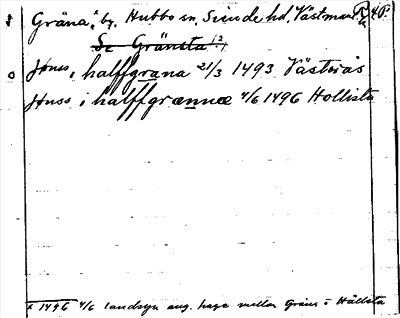 Gräna, by, Hubbo sn, Siende hd, Västmanl.
Se Gränsta
Jönss i halffgrana 21/3 1493 Västerås
Jönss i halffgrænnæ 4/6 1496 Hollista
x 1496 4/6 landsyn ang. hage mellan Gräna o Hällsta